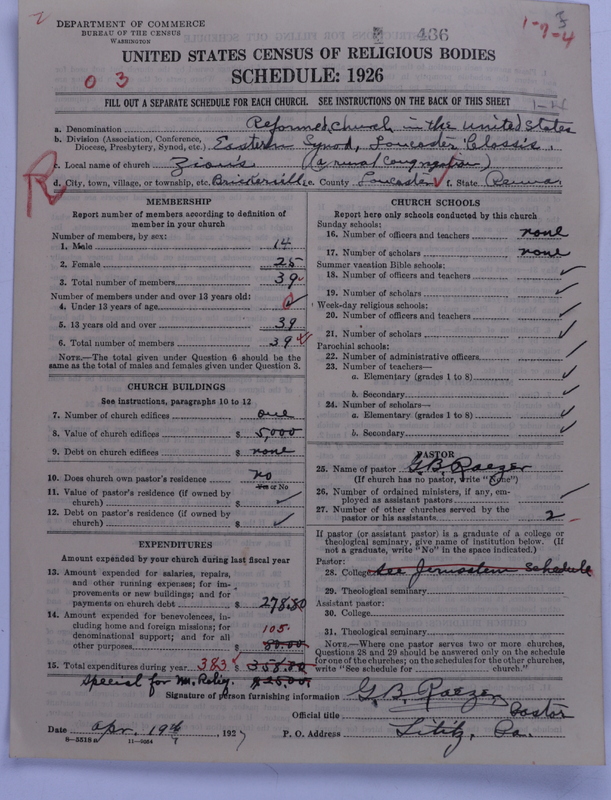 DEPARTMENT OF COMMERCE
BUREAU OF THE CENSUS
WASHINGTON
436
1-9-4
UNITED STATES CENSUS OF RELIGIOUS BODIES
0 3
SCHEDULE: 1926
FILL OUT A SEPARATE SCHEDULE FOR EACH CHURCH. SEE INSTRUCTIONS ON THE BACK OF THIS SHEET
a. Denomination Reformed Church in the United States
b. Division (Association, Conference, Diocese, Presbytery, Synod, etc.) Eastern Synod, Lancaster Classis.
c. Local name of church Zion's (a rural congregation)
d. City, town, village, or township, etc. Brickerville e. County Lancaster f. State Penna
R
MEMBERSHIP
Report number of members according to definition of
member in your church
Number of members, by sex:
1. Male 14
2. Female 25
3. Total number of members 39
Number of members under and over 13 years old:
4. Under 13 years of age 0
5. 13 years old and over 39
6. Total number of members 39
NOTE.—The total given under Question 6 should be the
same as the total of males and females given under Question 3.
CHURCH BUILDINGS
See instructions, paragraphs 10 to 12
7. Number of church edifices one
8. Value of church edifices $ 5,000
9. Debt on church edifices $ none
10. Does church own pastor's residence no
Yes or No
11. Value of pastor's residence (if owned by
church) $
12. Debt on pastor's residence (if owned by
church) $
EXPENDITURES
Amount expended by your church during last fiscal year
13. Amount expended for salaries, repairs,
and other running expenses; for im-
provements or new buildings; and for
payments on church debt $ 278.80
14. Amount expended for benevolences,
including home and foreign missions; for
denominational support; and for all
other purposes $ 105. 80.00
15. Total expenditures during year 383 $ 358.80
Special for Mn. Relig. $25.00
CHURCH SCHOOLS
Report here only schools conducted by this church
Sunday schools:
16. Number of officers and teachers none
17. Number of scholars none
Summer vacation Bible schools:
18. Number of officers and teachers
19. Number of scholars
Week-day religious schools:
20. Number of officers and teachers
21. Number of scholars
Parochial schools:
22. Number of administrative officers
23. Number of teachers—
a. Elementary (grades 1 to 8)
b. Secondary
24. Number of scholars—
a. Elementary (grades 1 to 8)
b. Secondary
PASTOR
25. Name of pastor G B Raezer
(If church has no pastor, write "None")
26. Number of ordained ministers, if any, em-
ployed as assistant pastors
27. Number of other churches served by the
pastor or his assistants 2
If pastor (or assistant pastor) is a graduate of a college or
theological seminary, give name of institution below. (If
not a graduate, write "No" in the space indicated.)
Pastor:
28. College see Jerusalem Schedule
29. Theological seminary
Assistant pastor:
30. College
31. Theological seminary
NOTE.—Where one pastor serves two or more churches,
Questions 28 and 29 should be answered only on the schedule
for one of the churches; on the schedules for the other churches,
write "See schedule for church."
Signature of person furnishing information G. B. Raezer
Official title Pastor
Date Apr. 19th, 1927 P. O. Address Lititz, Pa.
8-5518a 11-9084